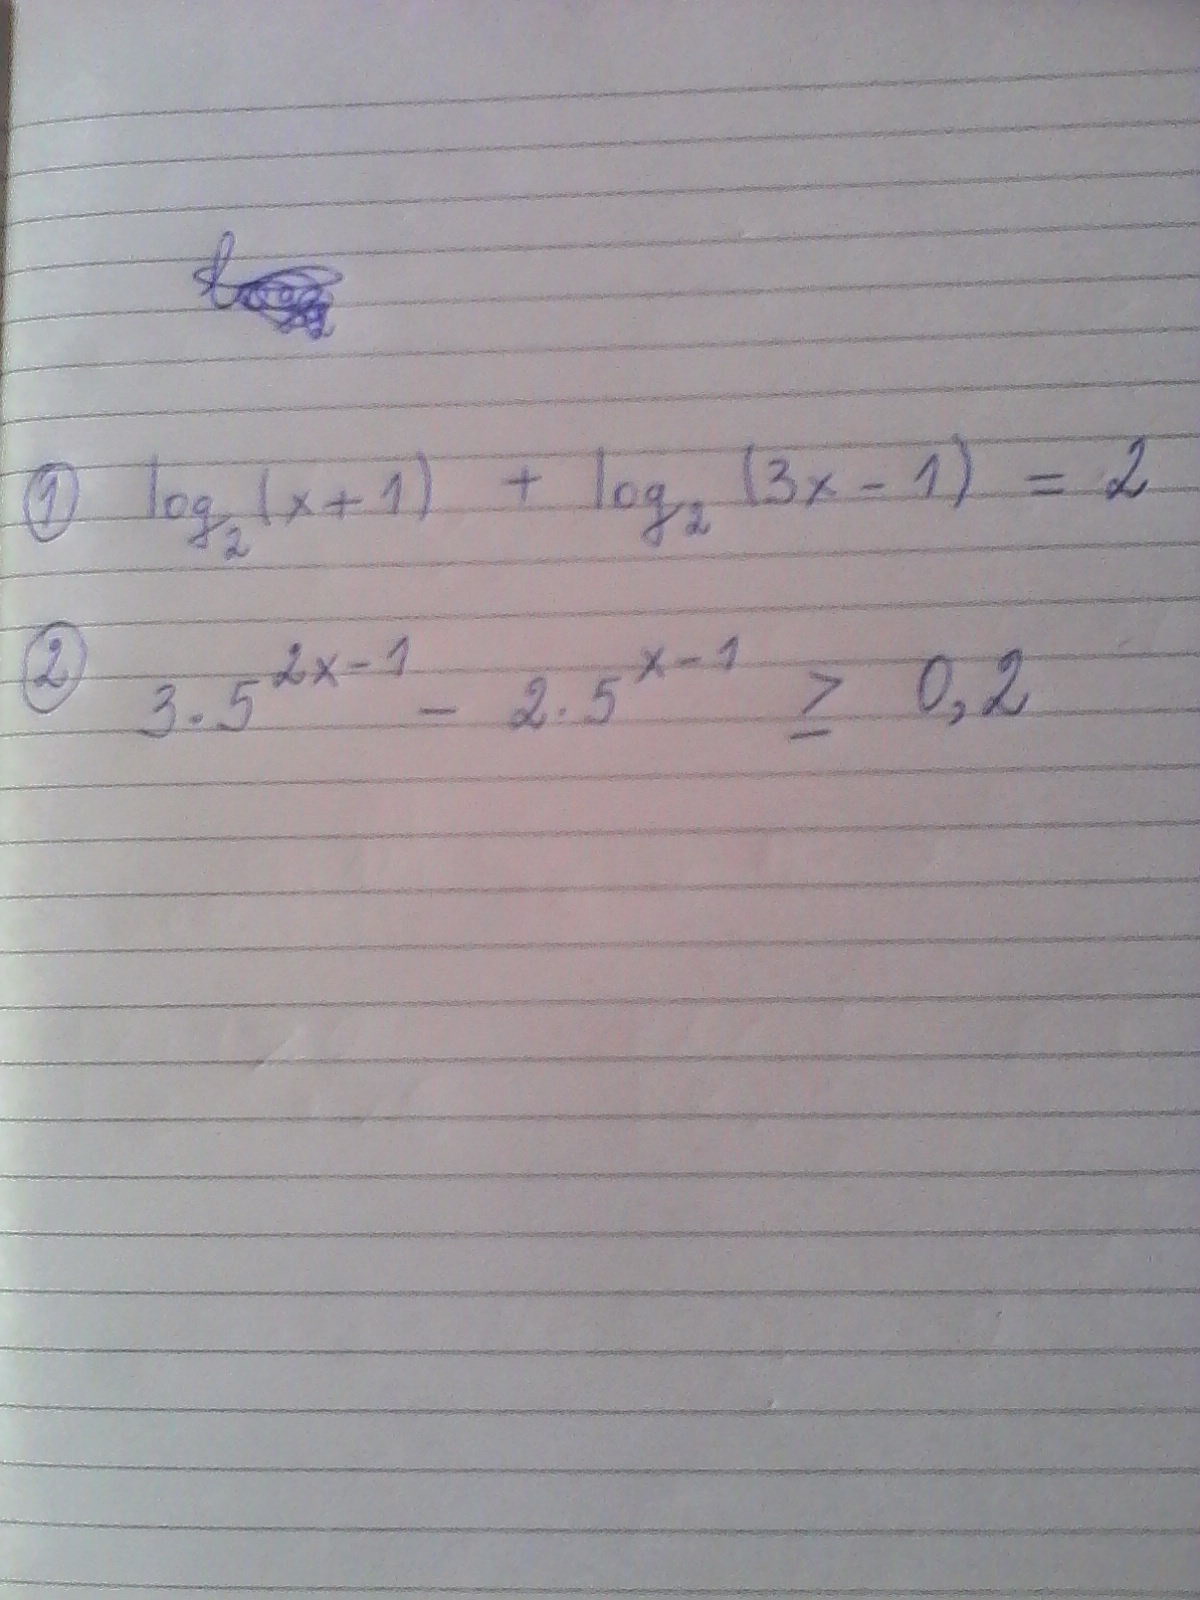 ① log₂(x+1) + log₂(3x-1) = 2
② 3·5^(2x-1) - 2·5^(x-1) ≥ 0,2